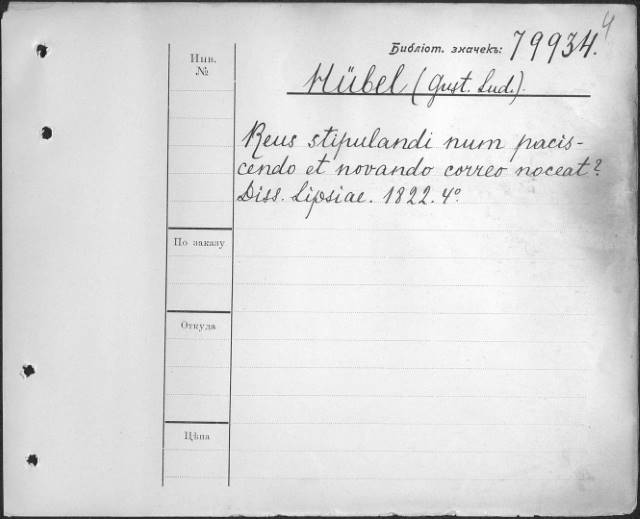 4
Библіот. значекъ: 79934.
Инв.
№
Hübel (Gust. Lud.).
Reus stipulandi num pacis-
cendo et novando correo noceat?
Diss. Lipsiae. 1822. 4º.
По заказу
Откуда
Цѣна